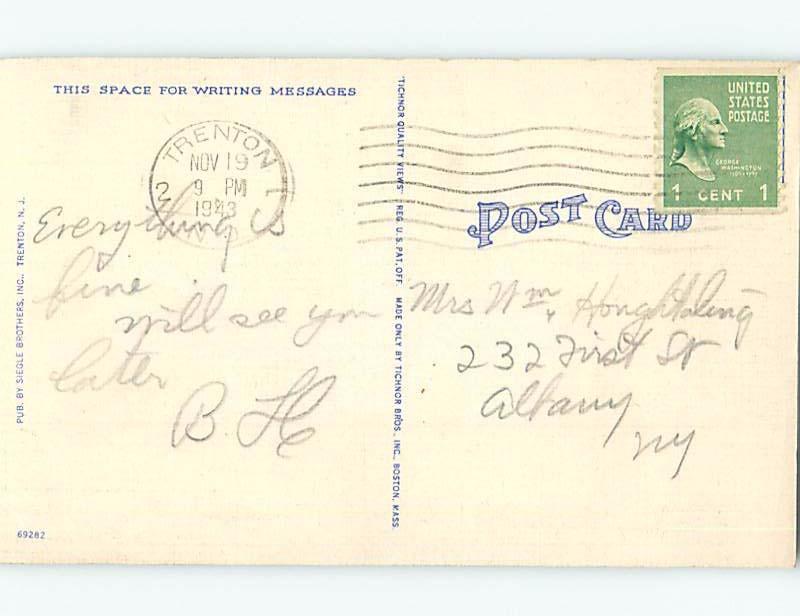 THIS SPACE FOR WRITING MESSAGES
TRENTON
NOV 19
9 PM
1943
2
Everything is
fine
will see you
later
B. H
PUB. BY SIEGLE BROTHERS, INC., TRENTON, N. J.
69282
"TICHNOR QUALITY VIEWS" REG. U. S. PAT. OFF. MADE ONLY BY TICHNOR BROS., INC., BOSTON, MASS.
UNITED
STATES
POSTAGE
GEORGE
WASHINGTON
1 CENT 1
POST CARD
Mrs Wm. Houghtaling
232 First St
Albany
NY